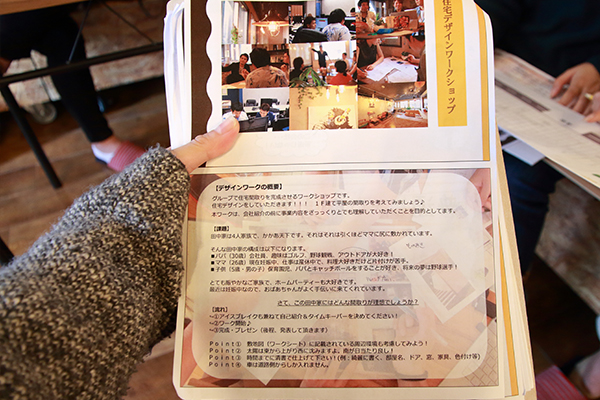 住宅デザインワークショップ
【デザインワークの概要】
グループで住宅間取りを完成させるワークショップです。
住宅デザインをしていただきます!!! 1F建て平屋の間取りを考えてみましょう♪
本ワークは、会社紹介の前に事業内容をざっくりとでも理解していただくことを目的としてます。
【課題】
田中家は4人家族で、かかあ天下です。それはそれは引くほどママに尻に敷かれています。
そんな田中家の構成は以下になります。
■パパ(30歳)会社員、趣味はゴルフ、野球観戦、アウトドアが大好き!
■ママ(26歳)現在妊娠中、仕事は産休中で、料理大好きだけど片付けが苦手。
■子供(5歳・男の子)保育園児、パパとキャッチボールをすることが好き、将来の夢は野球選手!
とても賑やかなご家族で、ホームパーティーも大好きです。
最近は妊娠中なので、おばあちゃんがよく手伝いに来てくれています。
さて、この田中家にはどんな間取りが理想でしょうか?
【流れ】
~①アイスブレイクも兼ねて自己紹介&タイムキーパーを決めてください!
~②ワーク開始♪
~③完成・プレゼン(後程、発表して頂きます)
Point① 敷地図(ワークシート)に記載されている周辺環境も考慮してみよう!
Point② 太陽は東から上がり西に沈みますよ。南が日当たり良し!
Point③ 時間までに清書で仕上げて下さい!(例:綺麗に書く、部屋名、ドア、窓、家具、色付け等)
Point④ 車は道路側からしか入れません。